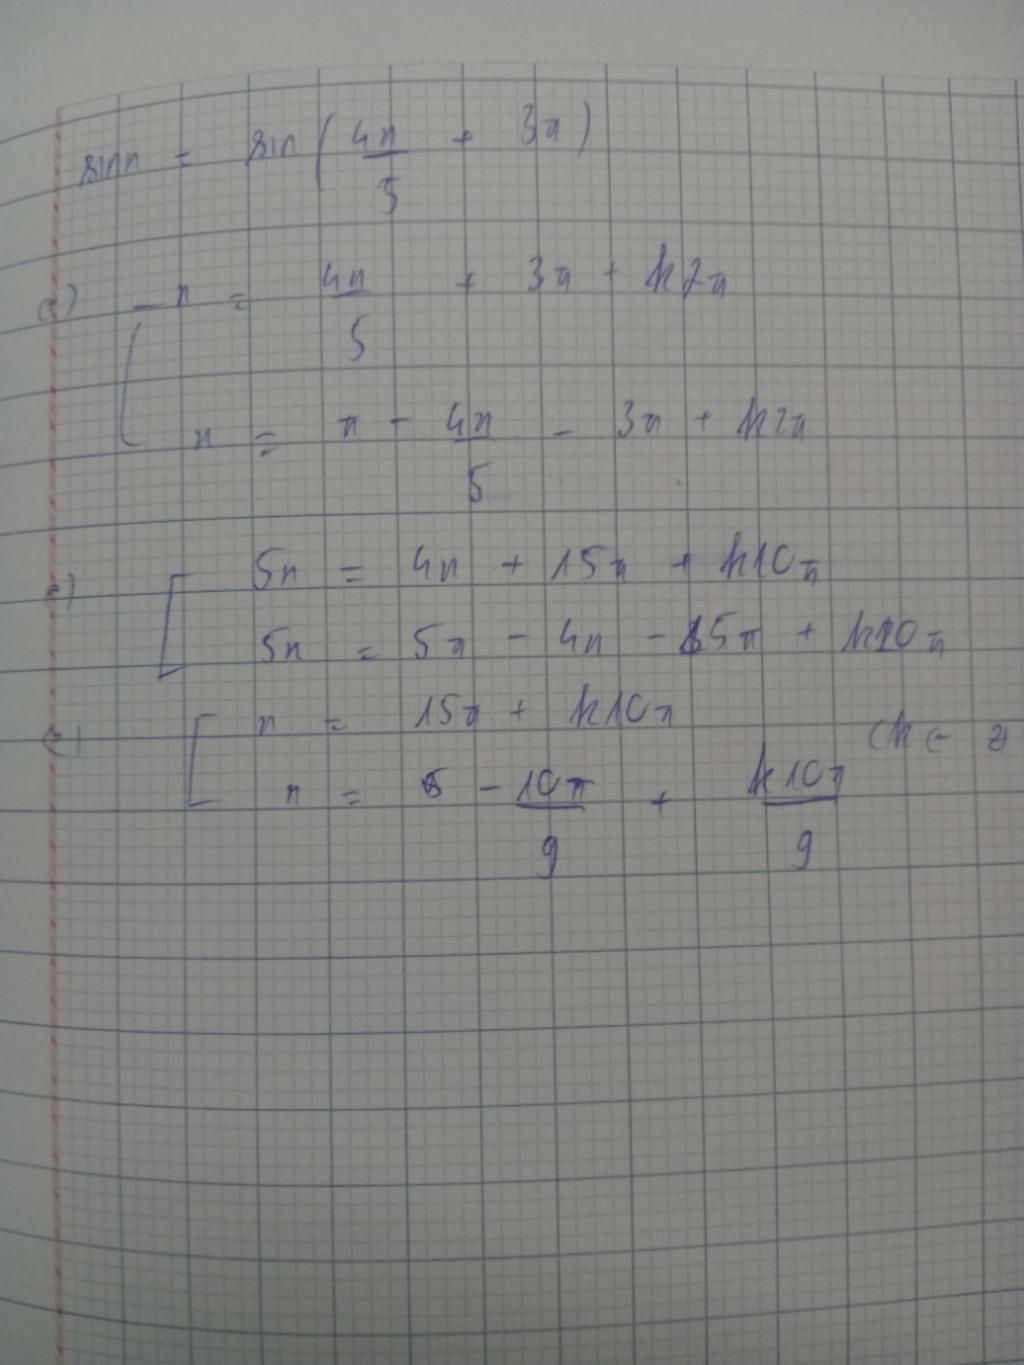 sin x = sin ( 4x/5 + 3π )
(=) [ x = 4x/5 + 3π + k2π
x = π - 4x/5 - 3π + k2π
(=) [ 5x = 4x + 15π + k10π
5x = 5π - 4x - 15π + k10π
(=) [ x = 15π + k10π (k ∈ Z)
x = -10π/9 + k10π/9